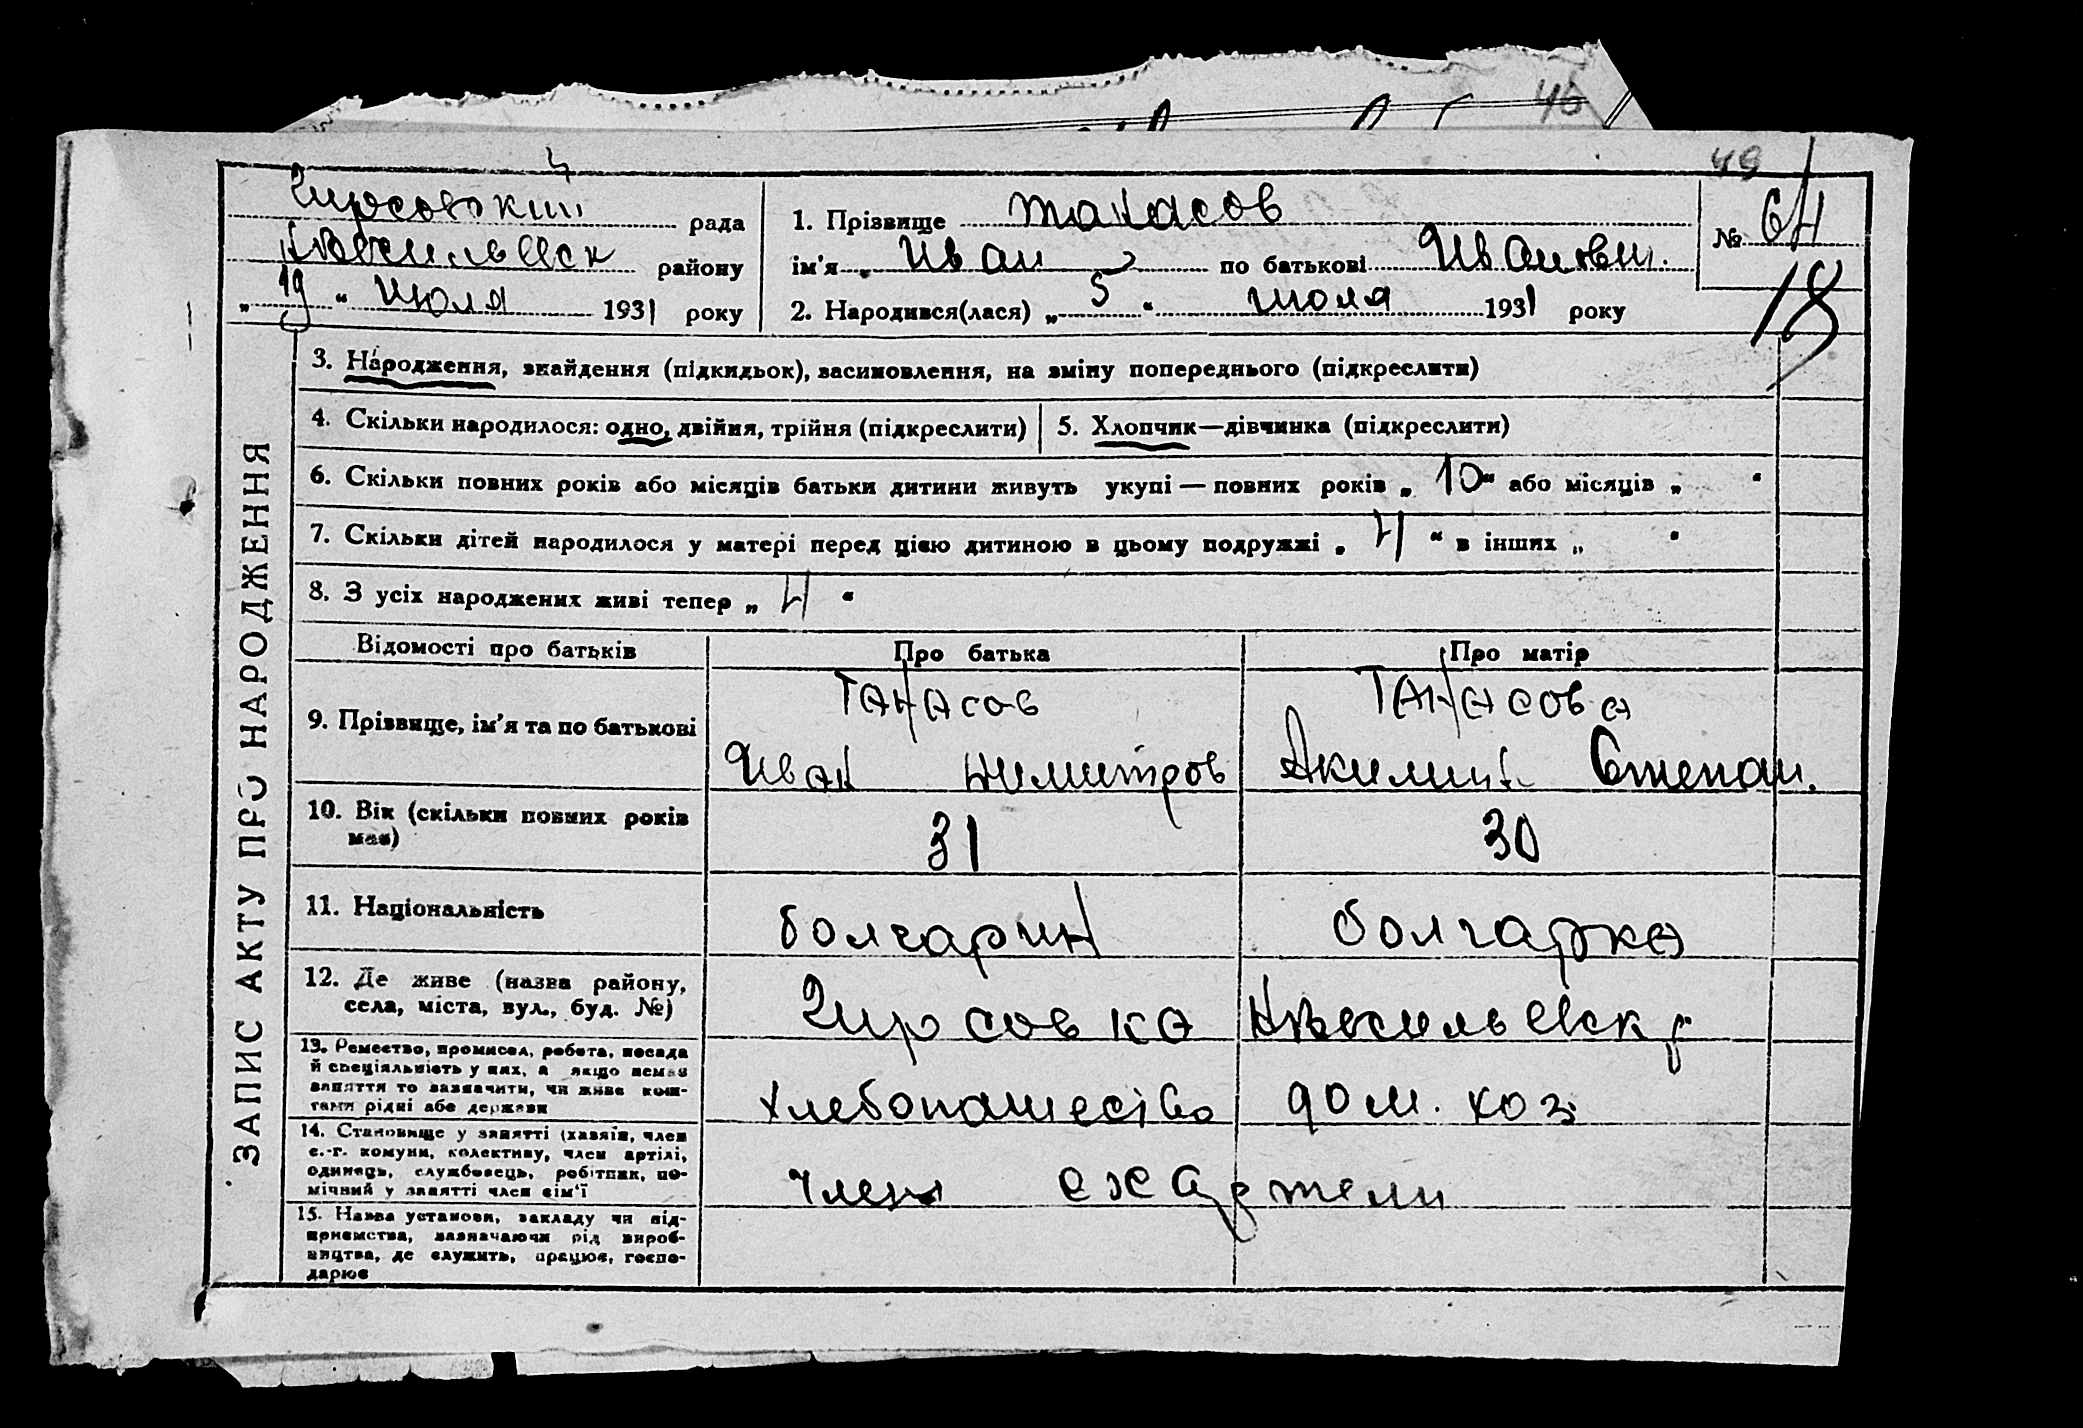 46
49
Гирсовский рада
района
„ 19 “ июля 1931 року
1. Прізвище Танасов
ім'я Иван по батькові Иванови.
2. Народився(лася) „ 5 “ июля 1931 року
№ 64
18
ЗАПИС АКТУ ПРО НАРОДЖЕННЯ
3. Народження, знайдення (підкидьок), засиновлення, на зміну попереднього (підкреслити)
4. Скільки народилося: одно, двійня, трійня (підкреслити)
5. Хлопчик—дівчинка (підкреслити)
6. Скільки повних років або місяців батьки дитини живуть укупі — повних років „ 10 “ або місяців „ “
7. Скільки дітей народилося у матері перед цією дитиною в цьому подружжі „ 4 “ в інших „ “
8. З усіх народжених живі тепер „ 4 “
Відомості про батьків
Про батька
Про матір
9. Прізвище, ім'я та по батькові
Танасов
Иван Димитров
Танасова
Степан.
10. Вік (скільки повних років має)
31
30
11. Національність
болгарин
болгарка
12. Де живе (назва району,
села, міста, вул., буд. №)
Гирсовка
13. Ремество, промисел, робота, посада
й спеціяльність у них, а якщо немає
заняття то зазначити, чи живе кош-
тами рідні або держави
хлебопашество
дом. хоз
14. Становище у занятті (хазяїн, член
с.-г. комуни, колективу, член артілі,
одинець, службовець, робітник, по-
мічний у занятті член сім'ї
член
15. Назва установи, закладу чи під-
приємства, зазначаючи рід вироб-
ництва, де служить, працює, госпо-
дарює